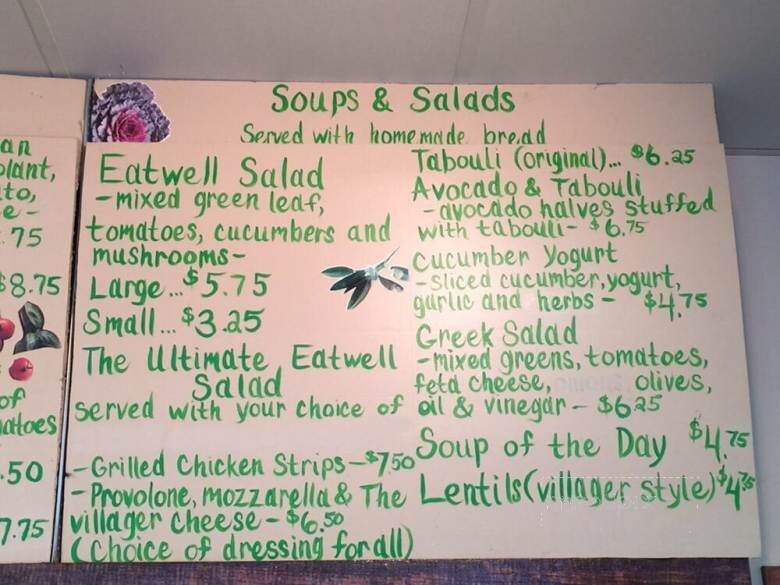 an
plant,
to,
e-
.75
$8.75
of
atoes
.50
7.75
Soups & Salads
Served with homemade bread
Eatwell Salad
-mixed green leaf,
tomatoes, cucumbers and
mushrooms-
Large...$5.75
Small...$3.25
The Ultimate Eatwell
Salad
served with your choice of
-Grilled Chicken Strips-$7.50
-Provolone, mozzarella & The
villager cheese-$6.50
(Choice of dressing for all)
Tabouli (original)... $6.25
Avocado & Tabouli
-avocado halves stuffed
with tabouli- $6.75
Cucumber Yogurt
-sliced cucumber, yogurt,
garlic and herbs- $4.75
Greek Salad
-mixed greens, tomatoes,
feta cheese, olives,
oil & vinegar- $6.25
Soup of the Day $4.75
Lentils (villager style) $4.75